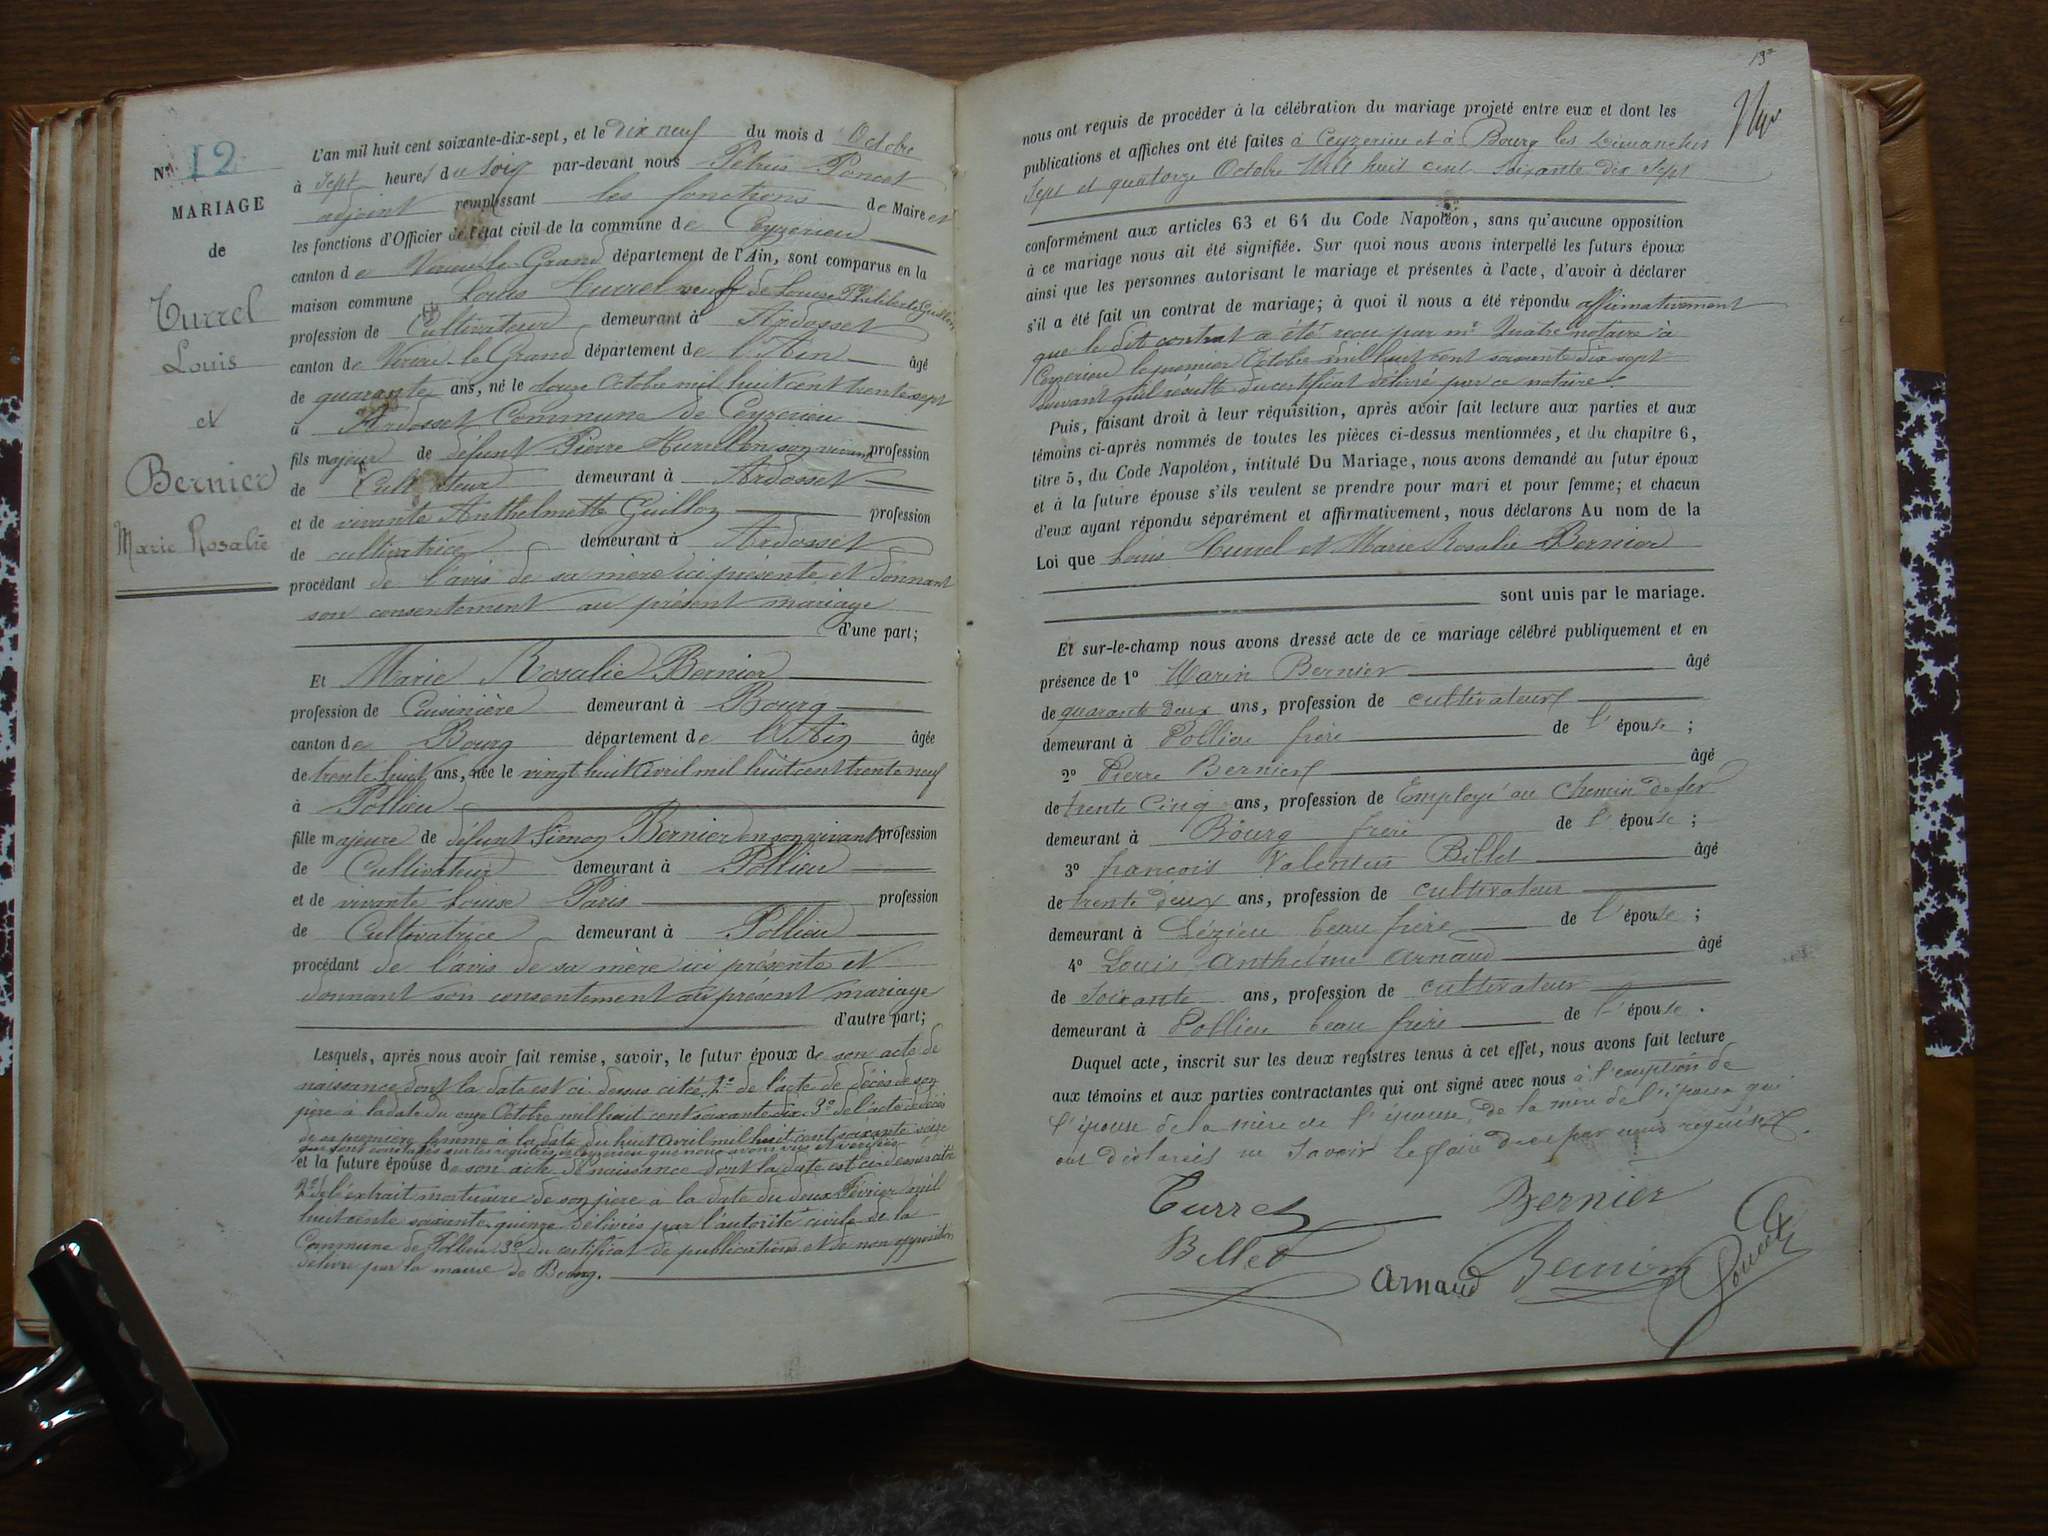 N° 12
MARIAGE
de
Turrel
Louis
et
Bernier
Marie Rosalie
L'an mil huit cent soixante-dix-sept, et le dix neuf du mois d Octobre
à sept heures du soir par-devant nous Pétrus Poncet
adjoint remplissant les fonctions de Maire et
les fonctions d'Officier de l'état civil de la commune de Ceyzerieu
canton de Virieu le Grand département de l'Ain, sont comparus en la
maison commune Louis Turrel veuf de Louise Philiberte Guillon
profession de Cultivateur demeurant à Ardosset
canton de Virieu le Grand département de l'Ain âgé
de quarante ans, né le douze Octobre mil huit cent trente sept
à Ardosset Commune de Ceyzerieu
fils majeur de défunt Pierre Turrel en son vivant profession
de Cultivateur demeurant à Ardosset
et de vivante Anthelmette Guillon profession
de cultivatrice demeurant à Ardosset
procédant de l'avis de sa mère ici présente et donnant
son consentement au présent mariage
d'une part;
Et Marie Rosalie Bernier
profession de Cuisinière demeurant à Bourg
canton de Bourg département de l'Ain âgée
de trente huit ans, née le vingt huit Avril mil huit cent trente neuf
à Pollieu
fille majeure de défunt Simon Bernier en son vivant profession
de Cultivateur demeurant à Pollieu
et de vivante Louise Paris profession
de Cultivatrice demeurant à Pollieu
procédant de l'avis de sa mère ici présente et
donnant son consentement au présent mariage
d'autre part;
Lesquels, après nous avoir fait remise, savoir, le futur époux de son acte de
naissance dont la date est ci dessus citée 2° de l'acte de décès de son
père à la date du onze Octobre mil huit cent soixante dix 3° de l'acte de décès
de sa première femme à la date du huit avril mil huit cent soixante seize
que sont constatés sur les registres de Ceyzerieu que nous avons vus et vérifiés
et la future épouse de son acte de naissance dont la date est ci dessus citée
2° de l'extrait mortuaire de son père à la date du deux Février mil
huit cente soixante quinze délivrés par l'autorité civile de la
Commune de Pollieu 3° du certificat de publications et de non opposition
délivré par la mairie de Bourg.
13
nous ont requis de procéder à la célébration du mariage projeté entre eux et dont les
publications et affiches ont été faites à Ceyzerieu et à Bourg les Dimanches
sept et quatorze Octobre mil huit cent soixante dix sept
conformément aux articles 63 et 64 du Code Napoléon, sans qu'aucune opposition
à ce mariage nous ait été signifiée. Sur quoi nous avons interpellé les futurs époux
ainsi que les personnes autorisant le mariage et présentes à l'acte, d'avoir à déclarer
s'il a été fait un contrat de mariage; à quoi il nous a été répondu affirmativement
que le dit contrat a été reçu par me Quatre notaire à
Ceyzerieu le premier Octobre mil huit cent soixante dix sept
suivant qu'il résulte du certificat délivré par ce notaire.
Puis, faisant droit à leur réquisition, après avoir fait lecture aux parties et aux
témoins ci-après nommés de toutes les pièces ci-dessus mentionnées, et du chapitre 6,
titre 5, du Code Napoléon, intitulé Du Mariage, nous avons demandé au futur époux
et à la future épouse s'ils veulent se prendre pour mari et pour femme; et chacun
d'eux ayant répondu séparément et affirmativement, nous déclarons Au nom de la
Loi que Louis Turrel et Marie Rosalie Bernier
sont unis par le mariage.
Et sur-le-champ nous avons dressé acte de ce mariage célébré publiquement et en
présence de 1° Marin Bernier âgé
de quarante deux ans, profession de cultivateur
demeurant à Pollieu frère de l'épouse;
2° Pierre Bernier âgé
de trente cinq ans, profession de Employé au chemin de fer
demeurant à Bourg frère de l'épouse;
3° françois Valentin Billet âgé
de trente deux ans, profession de cultivateur
demeurant à Lézieu beau frère de l'épouse;
4° Louis Anthelme Arnaud âgé
de soixante ans, profession de cultivateur
demeurant à Pollieu beau frère de l'épouse.
Duquel acte, inscrit sur les deux registres tenus à cet effet, nous avons fait lecture
aux témoins et aux parties contractantes qui ont signé avec nous à l'exeption de
l'épouse de la mère de l'épouse, de la mère de l'époux qui
ont déclarées ne savoir le faire de ce par nous requises.
Turrel
Bernier
Billet
Arnaud
Bernier
Poncet